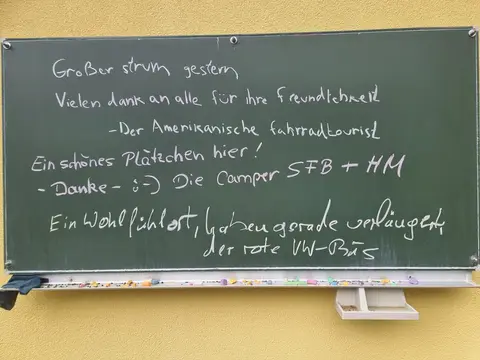 Großer strum gestern
Vielen dank an alle für ihre freundlichkeit
-Der Amerikanische fahrradtourist
Ein schönes Plätzchen hier!
- Danke - :-) Die Camper SFB + HM
Ein Wohlfühlort, haben gerade verlängert,
der rote VW-Bus